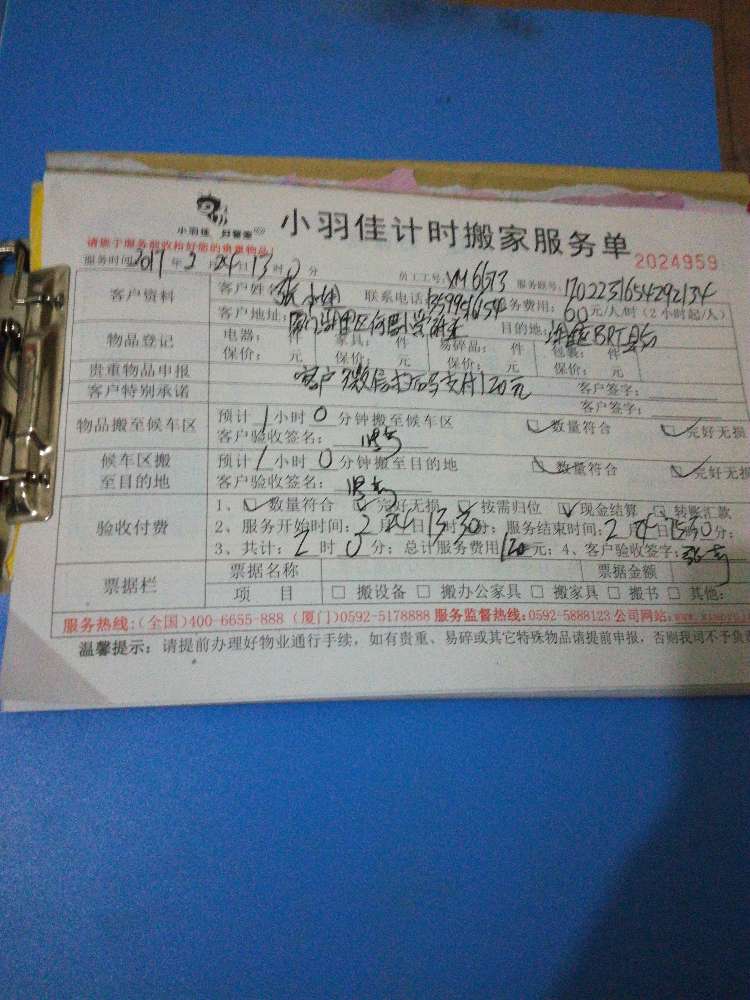 小羽佳 好管家
小羽佳计时搬家服务单
2024959
请您于服务前收拾好您的贵重物品!
服务时间:2017年2月24日13时0分 员工工号:XM6673 服务账号:1702231654292134
客户资料 客户姓名: 联系电话: 服务费用:60元/人/时(2小时起/人)
客户地址: 目的地:
物品登记 电器: 件 家具: 件 易碎品: 件 包裹: 件
保价: 元 保价: 元 保价: 元 保价: 元
贵重物品申报 客户微信扫码支付120元 客户签字:
客户特别承诺 客户签字:
物品搬至候车区 预计1小时0分钟搬至候车区 数量符合 完好无损
客户验收签名:
候车区搬至目的地 预计1小时0分钟搬至目的地 数量符合 完好无损
客户验收签名:
验收付费 1、数量符合 完好无损 按需归位 现金结算 转账汇款
2、服务开始时间:2月24日13时30分;服务结束时间:2月24日15:30分;
3、共计:2时0分;总计服务费用120元;4、客户验收签字:
票据栏 票据名称 票据金额
项目 搬设备 搬办公家具 搬家具 搬书 其他:
服务热线:(全国)400-6655-888 (厦门)0592-5178888 服务监督热线:0592-5888123 公司网站:
温馨提示:请提前办理好物业通行手续,如有贵重、易碎或其它特殊物品请提前申报,否则我司不予负